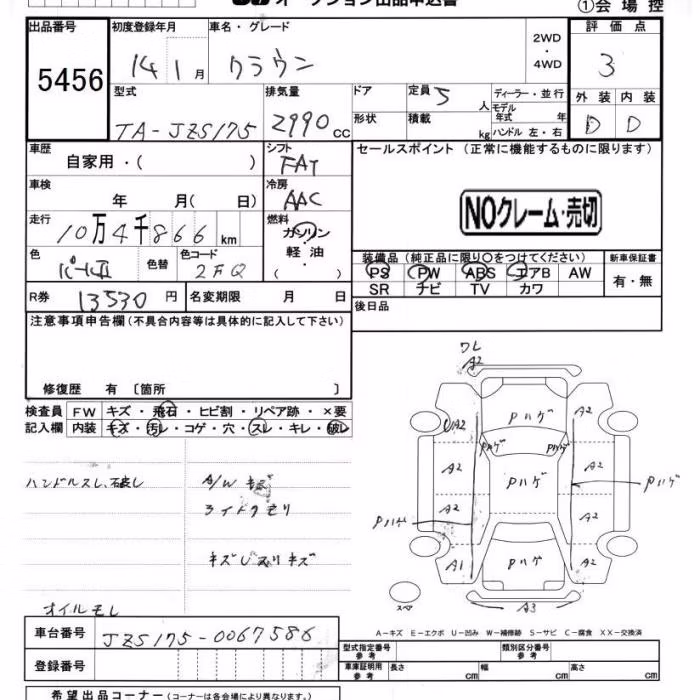 オークション出品申込書
①会場控
出品番号 初度登録年月 車名・グレード 2WD 評価点
5456 14 1月 クラウン ・4WD 3
型式 排気量 ドア 定員 5 人 ディーラー・並行 外装 内装
TA-JZS175 2990cc 形状 積載 kg モデル年式 年 D D
ハンドル 左・右
車歴 シフト セールスポイント (正常に機能するものに限ります)
自家用・( ) FAT
車検 冷房
年 月( 日) AAC NOクレーム・売切
走行 燃料
10万4千866km ガソリン・軽油・( )
色 色替 色コード 装備品(純正品に限り○をつけてください) 新車保証書
パール 2FQ PS PW ABS エアB AW 有・無
SR ナビ TV カワ
R券 13530円 名変期限 月 日 後日品
注意事項申告欄(不具合内容等は具体的に記入して下さい)
修復歴 有〔箇所 〕
検査員 FW キズ・飛石・ヒビ割・リペア跡・×要
記入欄 内装 キズ・汚レ・コゲ・穴・スレ・キレ・破レ
ハンドルスレ、破レ A/W キズ
ライトクモリ
キズUスリキズ
オイルモレ
ワレ
A2
Pハゲ
UA2 A2
Pハゲ Pハゲ
A2 Pハゲ A2 Pハゲ
A2 A2
Pハゲ
A1 Pハゲ A2
スペア
A3
A-キズ E-エクボ U-凹み W-補修跡 S-サビ C-腐食 XX-交換済
車台番号 JZS175-0067586
登録番号
型式指定番号 参考 類別区分番号 参考
車庫証明用 参考 長さ cm 幅 cm 高さ cm
希望出品コーナー(コーナーは各会場により異なります。)